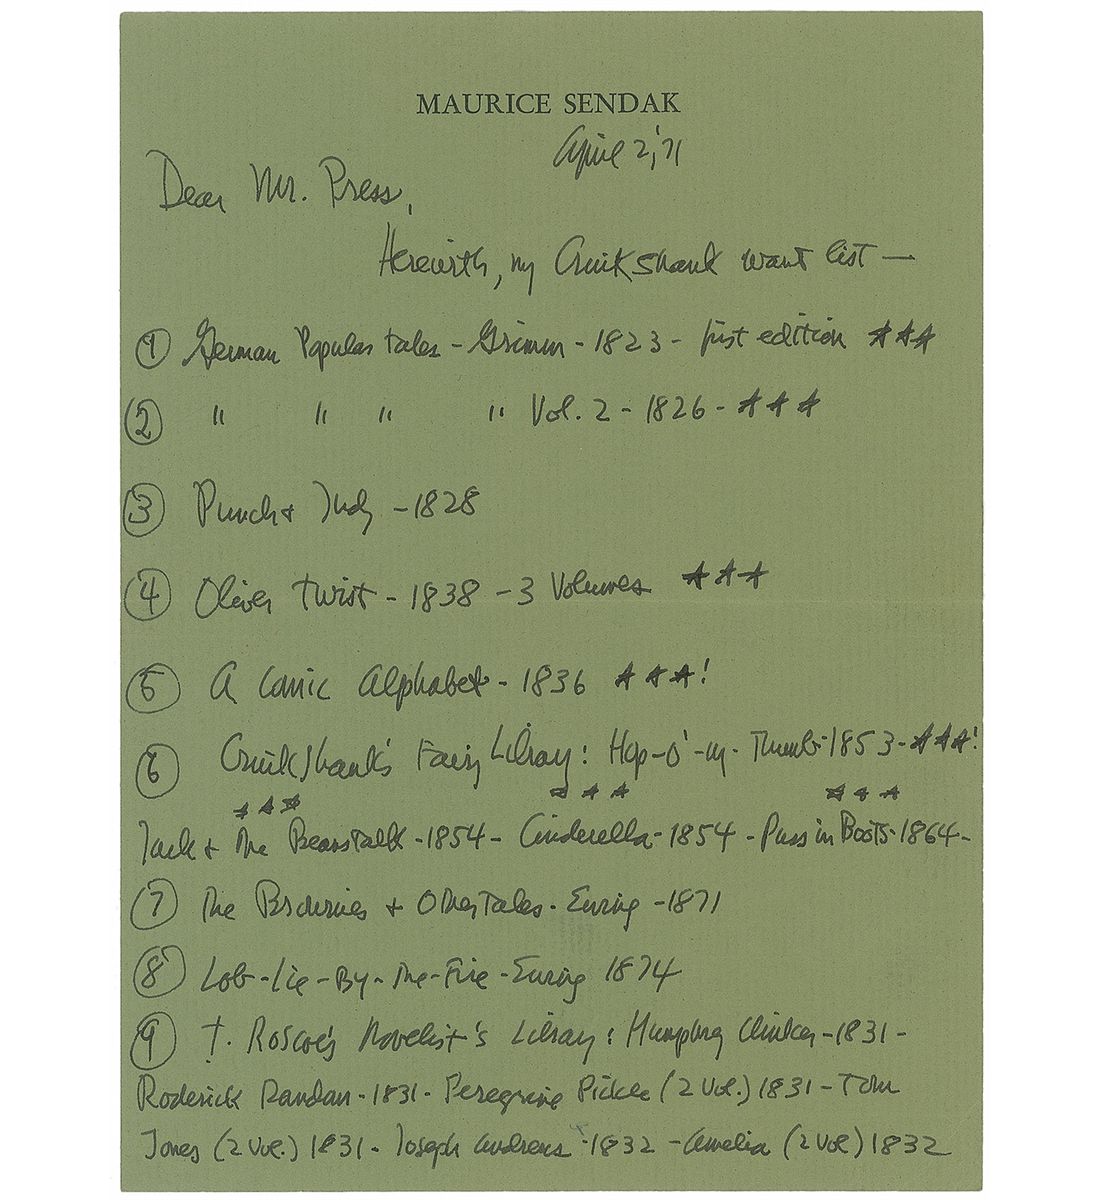 MAURICE SENDAK
April 2, '71
Dear Mr. Press,
Herewith, my Cruikshank want list —
① German Popular tales - Grimm - 1823 - first edition ★★★
② " " " " Vol. 2 - 1826 - ★★★
③ Punch + Judy - 1828
④ Oliver Twist - 1838 - 3 Volumes ★★★
⑤ A Comic Alphabet - 1836 ★★★!
⑥ Cruikshank's Fairy Library: Hop-o'-my-Thumb-1853-★★★!
★★★ ★★★ ★★★
Jack + the Beanstalk - 1854 - Cinderella - 1854 - Puss in Boots - 1864 -
⑦ The Brownies + Other Tales - Ewing - 1871
⑧ Lob-Lie-By-The-Fire - Ewing 1874
⑨ †. Roscoe's Novelist's Library: Humphry Clinker - 1831 -
Roderick Random - 1831 - Peregrine Pickle (2 Vol.) 1831 - Tom
Jones (2 Vol.) 1831 - Joseph Andrews - 1832 - Amelia (2 Vol) 1832